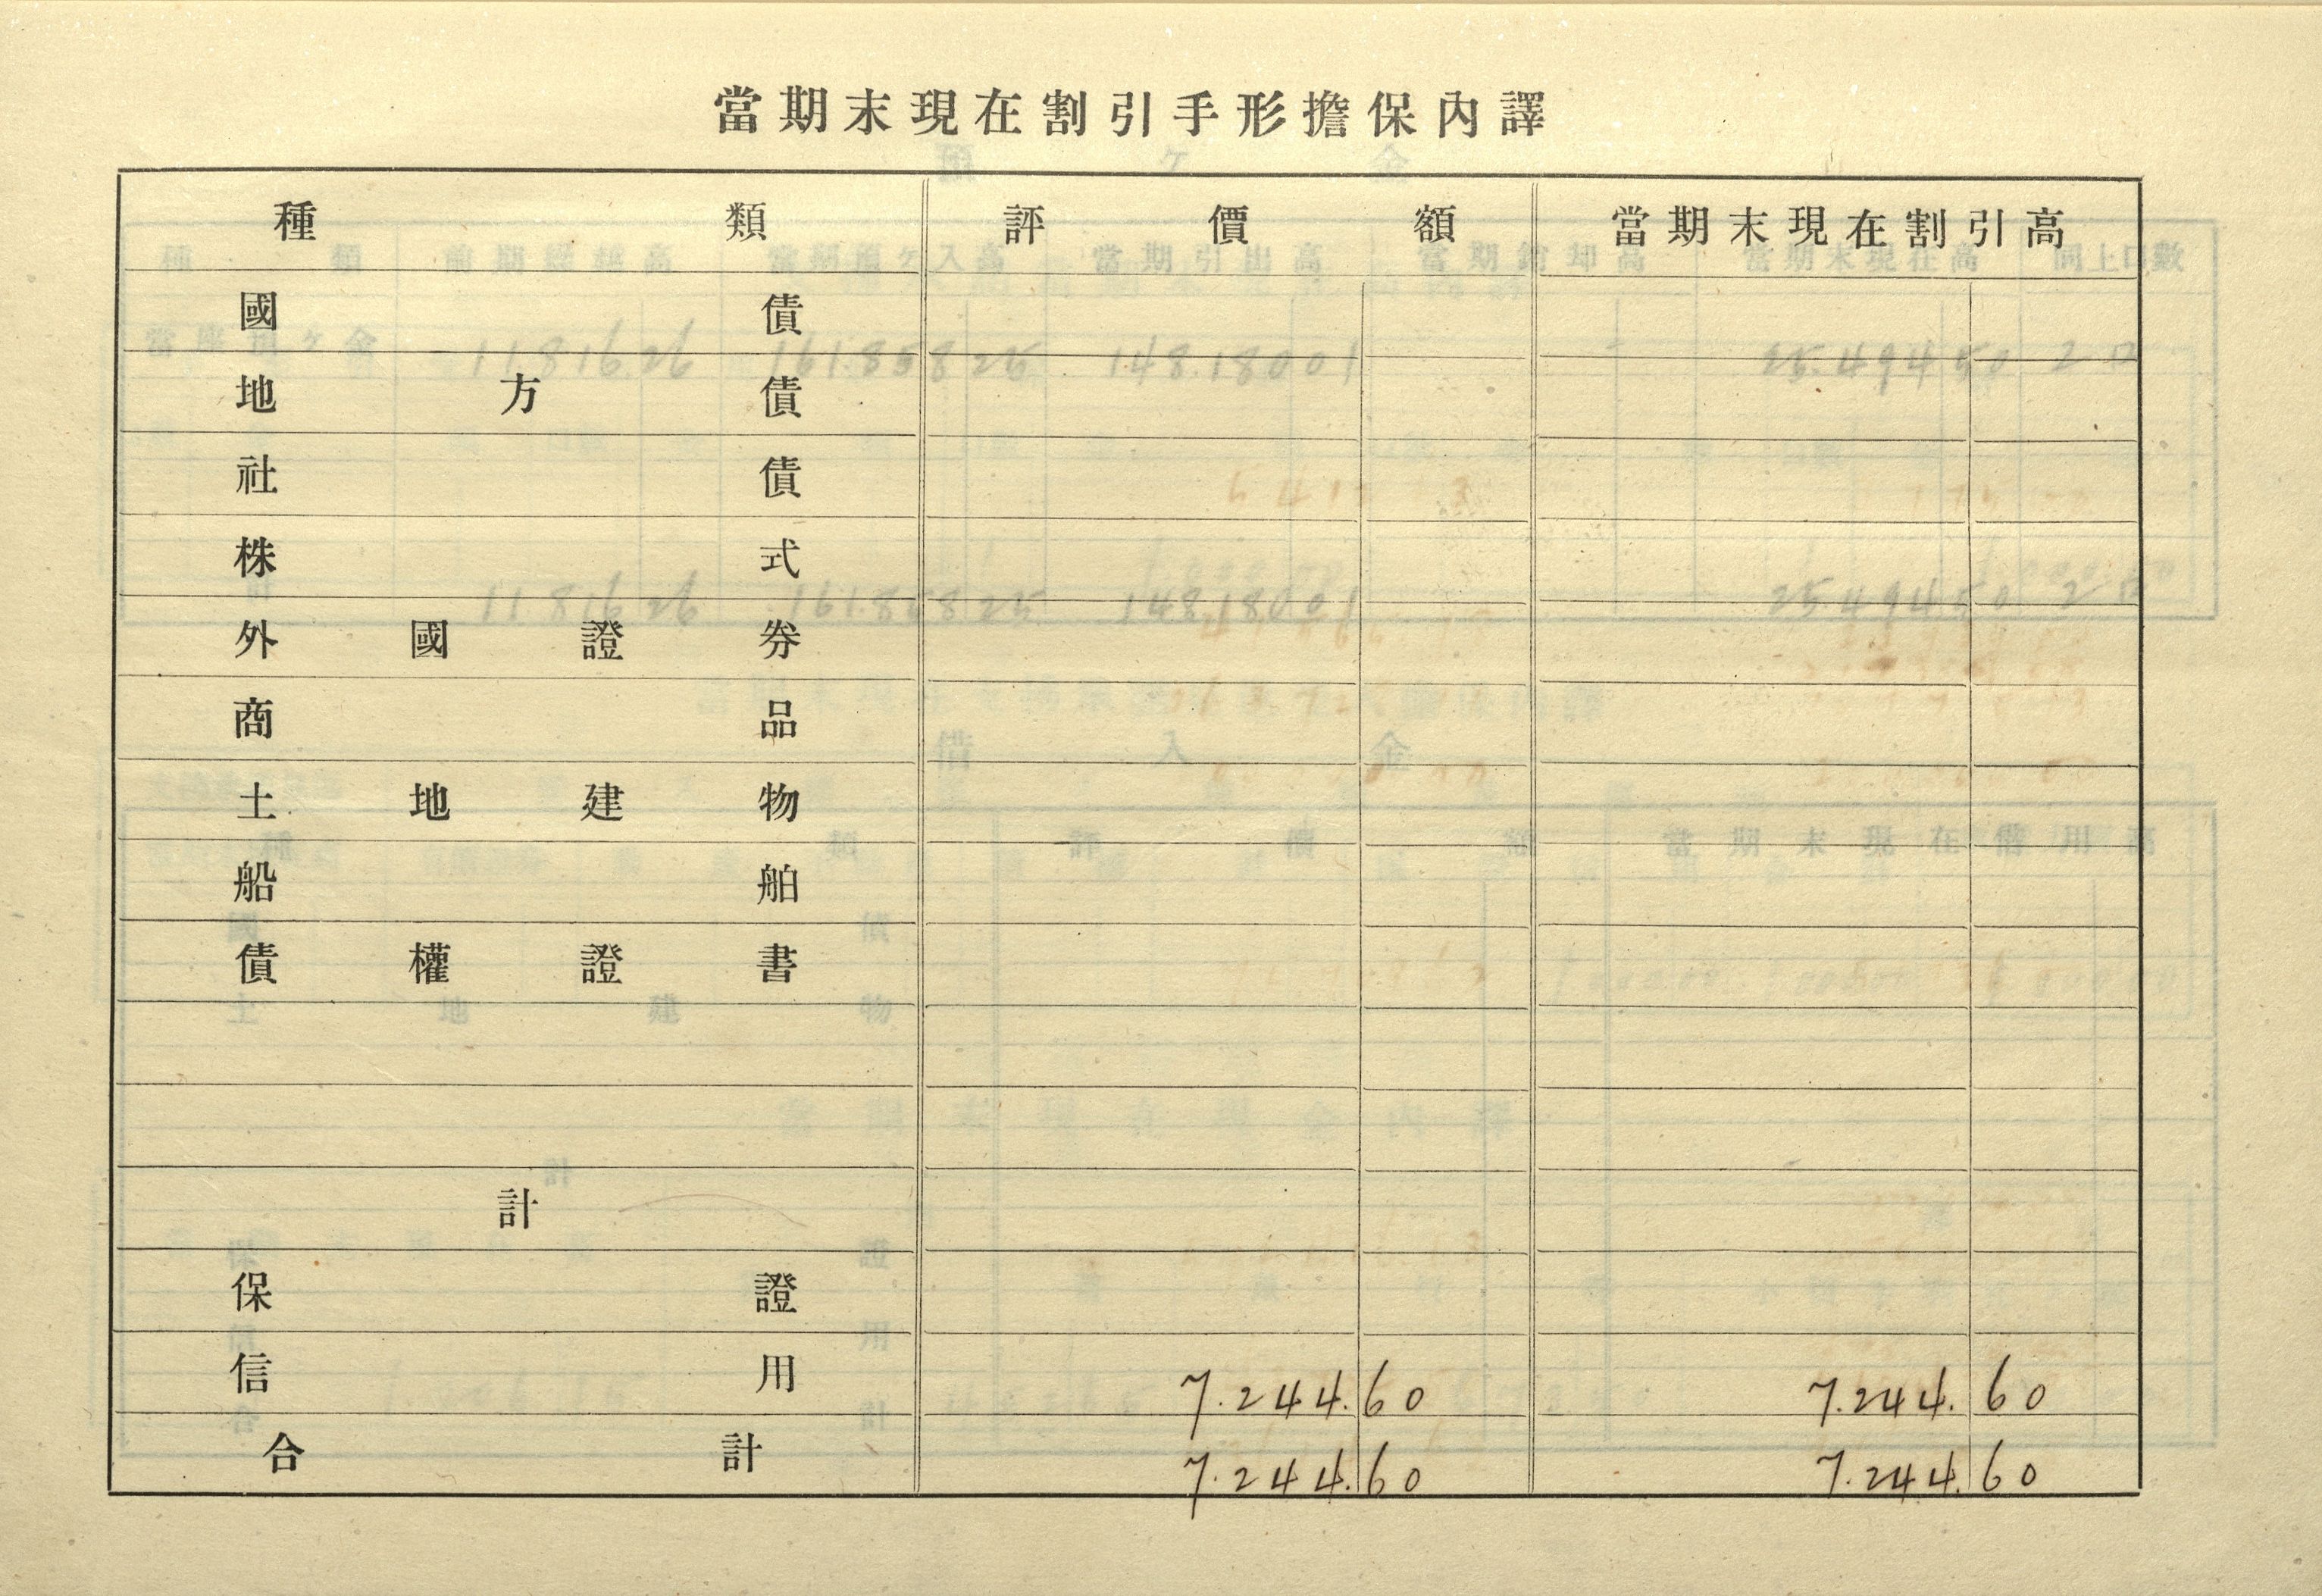 當期末現在割引手形擔保內譯
種類 評價額 當期末現在割引高
國債
地方債
社債
株式
外國證券
商品
土地建物
船舶
債權證書
計
保證
信用 7.244.60 7.244.60
合計 7.244.60 7.244.60